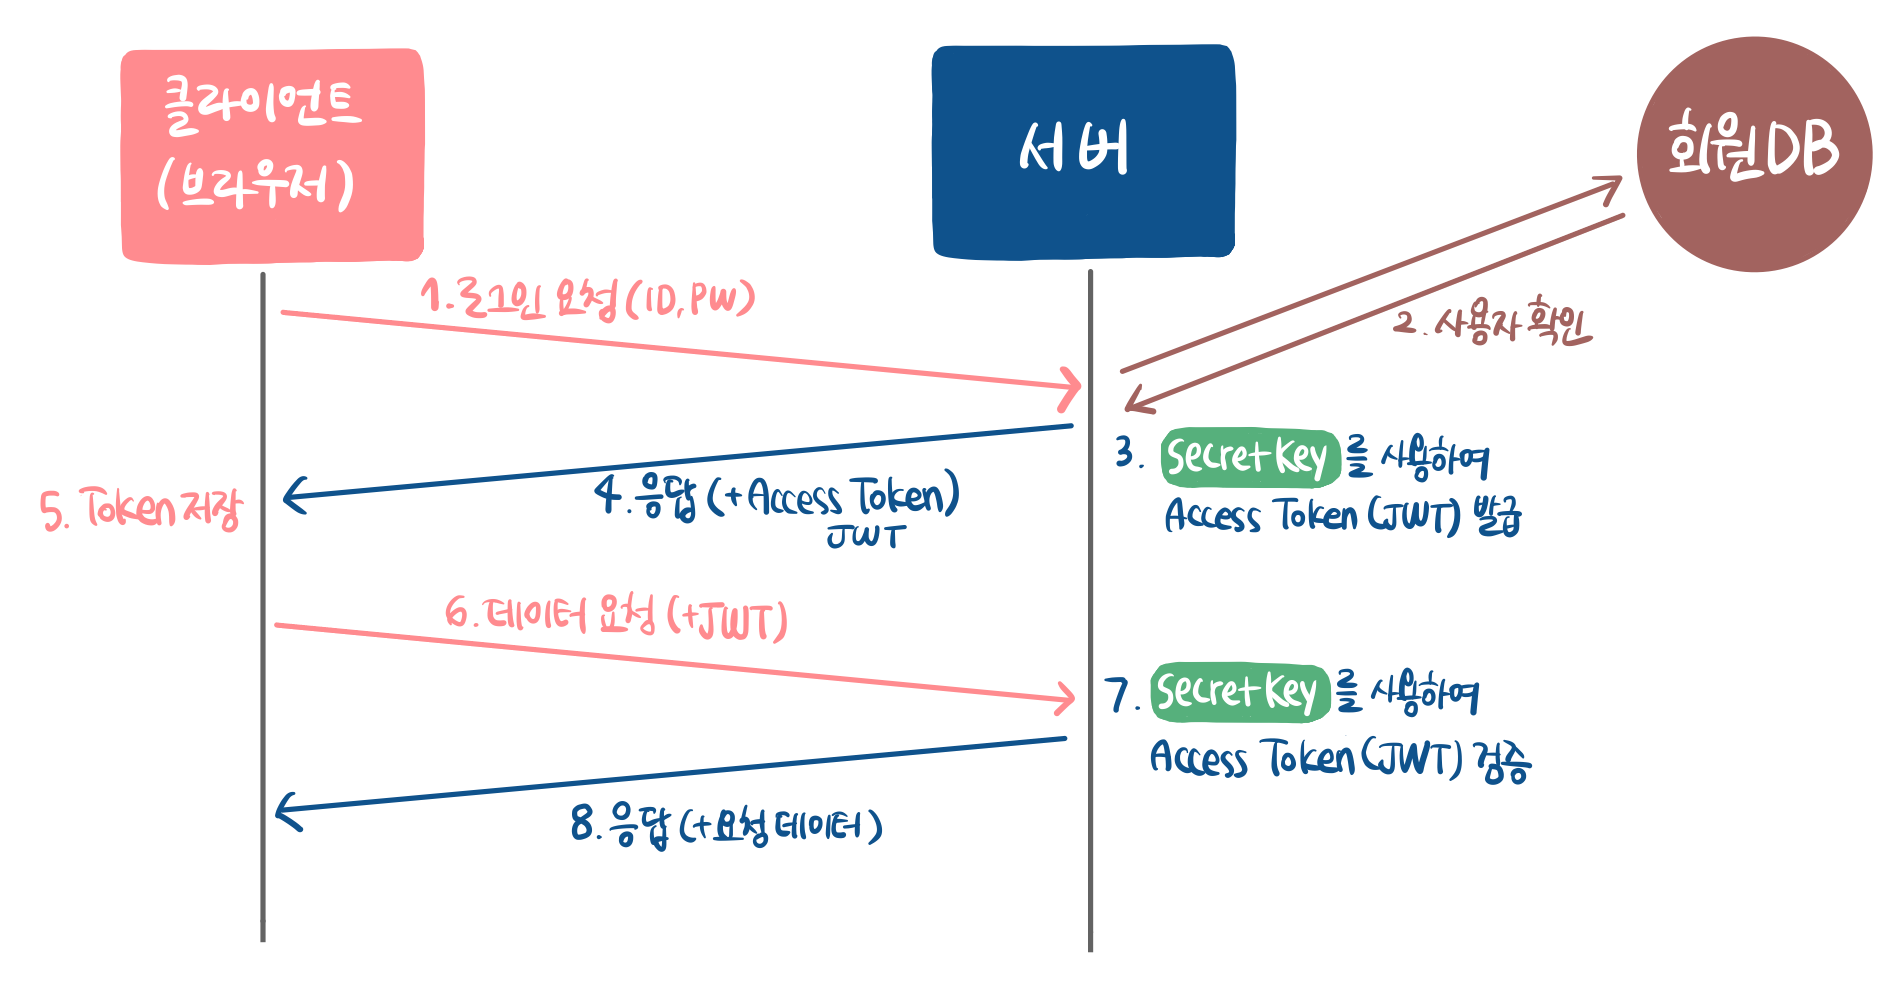 클라이언트
(브라우저)
서버
회원DB
1.로그인 요청(ID,PW)
2.사용자 확인
3. Secret Key 를 사용하여
Access Token (JWT) 발급
4.응답 (+Access Token)
JWT
5. Token 저장
6.데이터 요청 (+JWT)
7. Secret Key 를 사용하여
Access Token (JWT) 검증
8.응답 (+요청데이터)